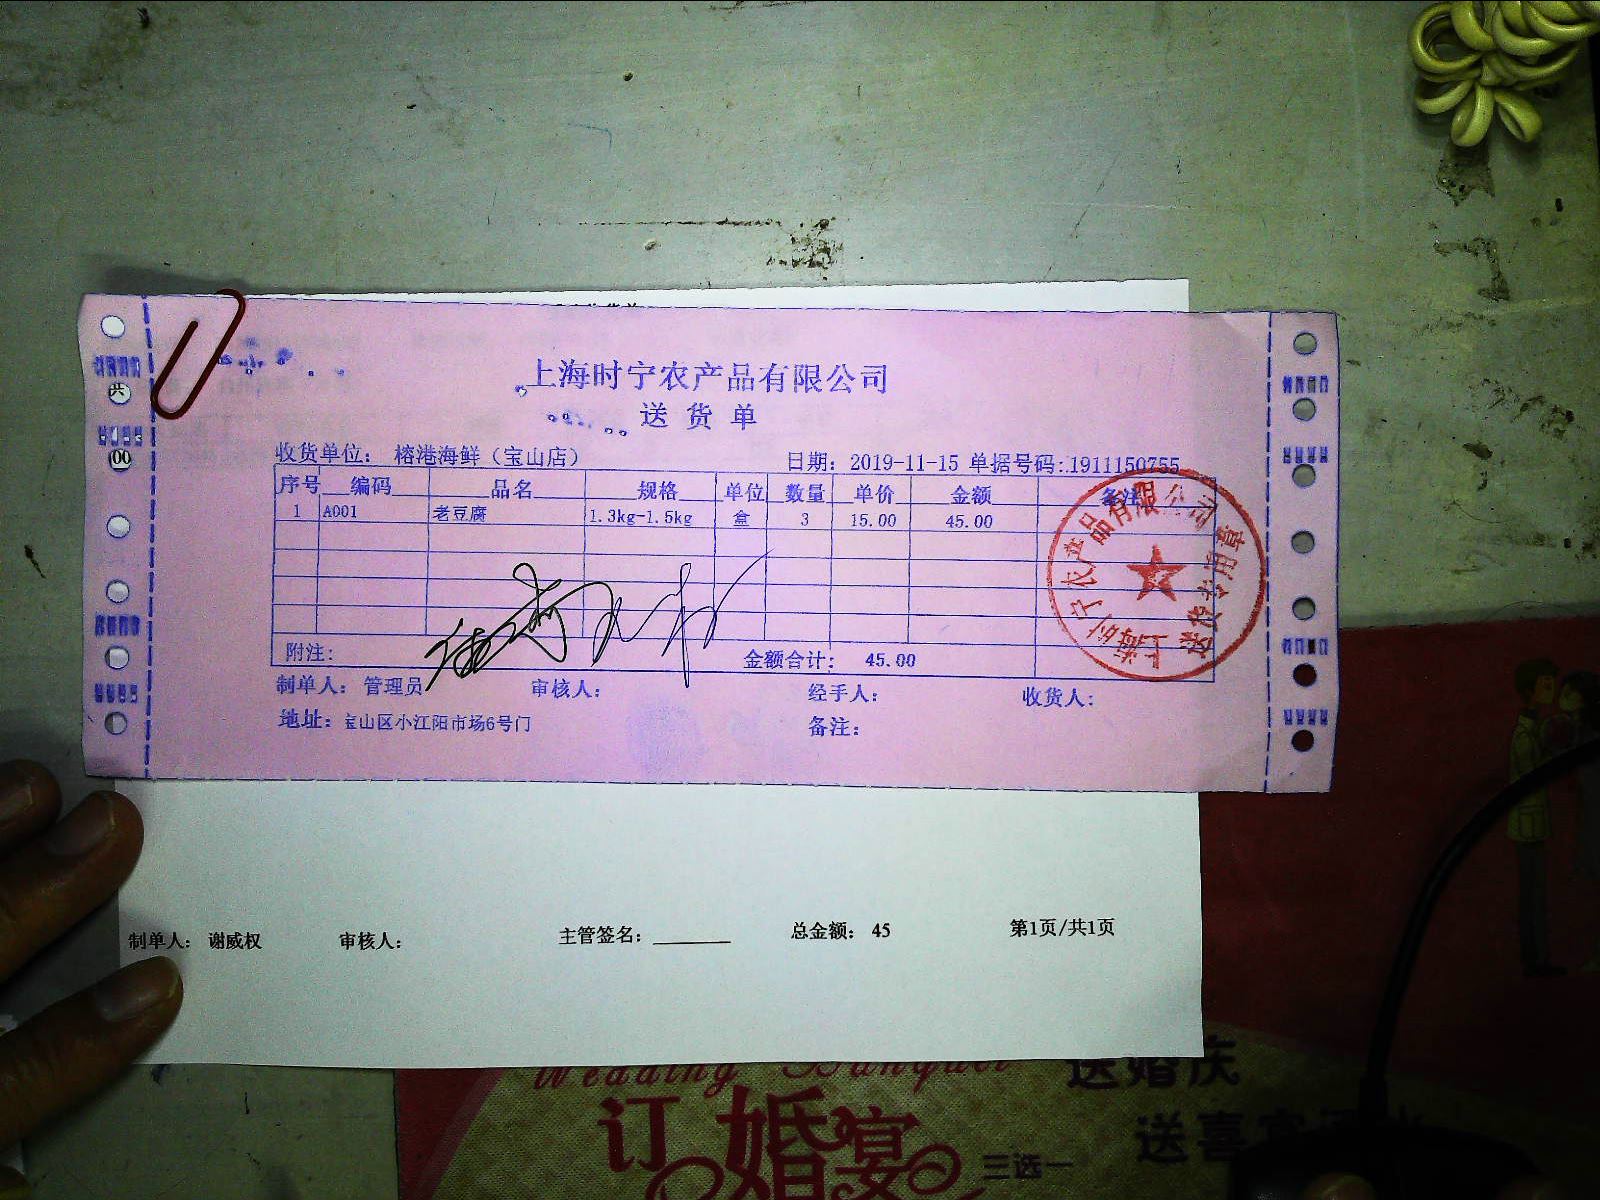 上海时宁农产品有限公司
送货单
收货单位： 榕港海鲜（宝山店） 日期：2019-11-15 单据号码:1911150755
序号 编码 品名 规格 单位 数量 单价 金额 备注
1 A001 老豆腐 1.3kg-1.5kg 盒 3 15.00 45.00
上海时宁农产品有限公司
送货专用章
附注： 金额合计： 45.00
制单人：管理员 审核人： 经手人： 收货人：
地址：宝山区小江阳市场6号门 备注：
共
00
制单人： 谢威权 审核人： 主管签名： 总金额： 45 第1页/共1页
Wedding Banquet
订婚宴
三选一
送婚庆
送喜宴